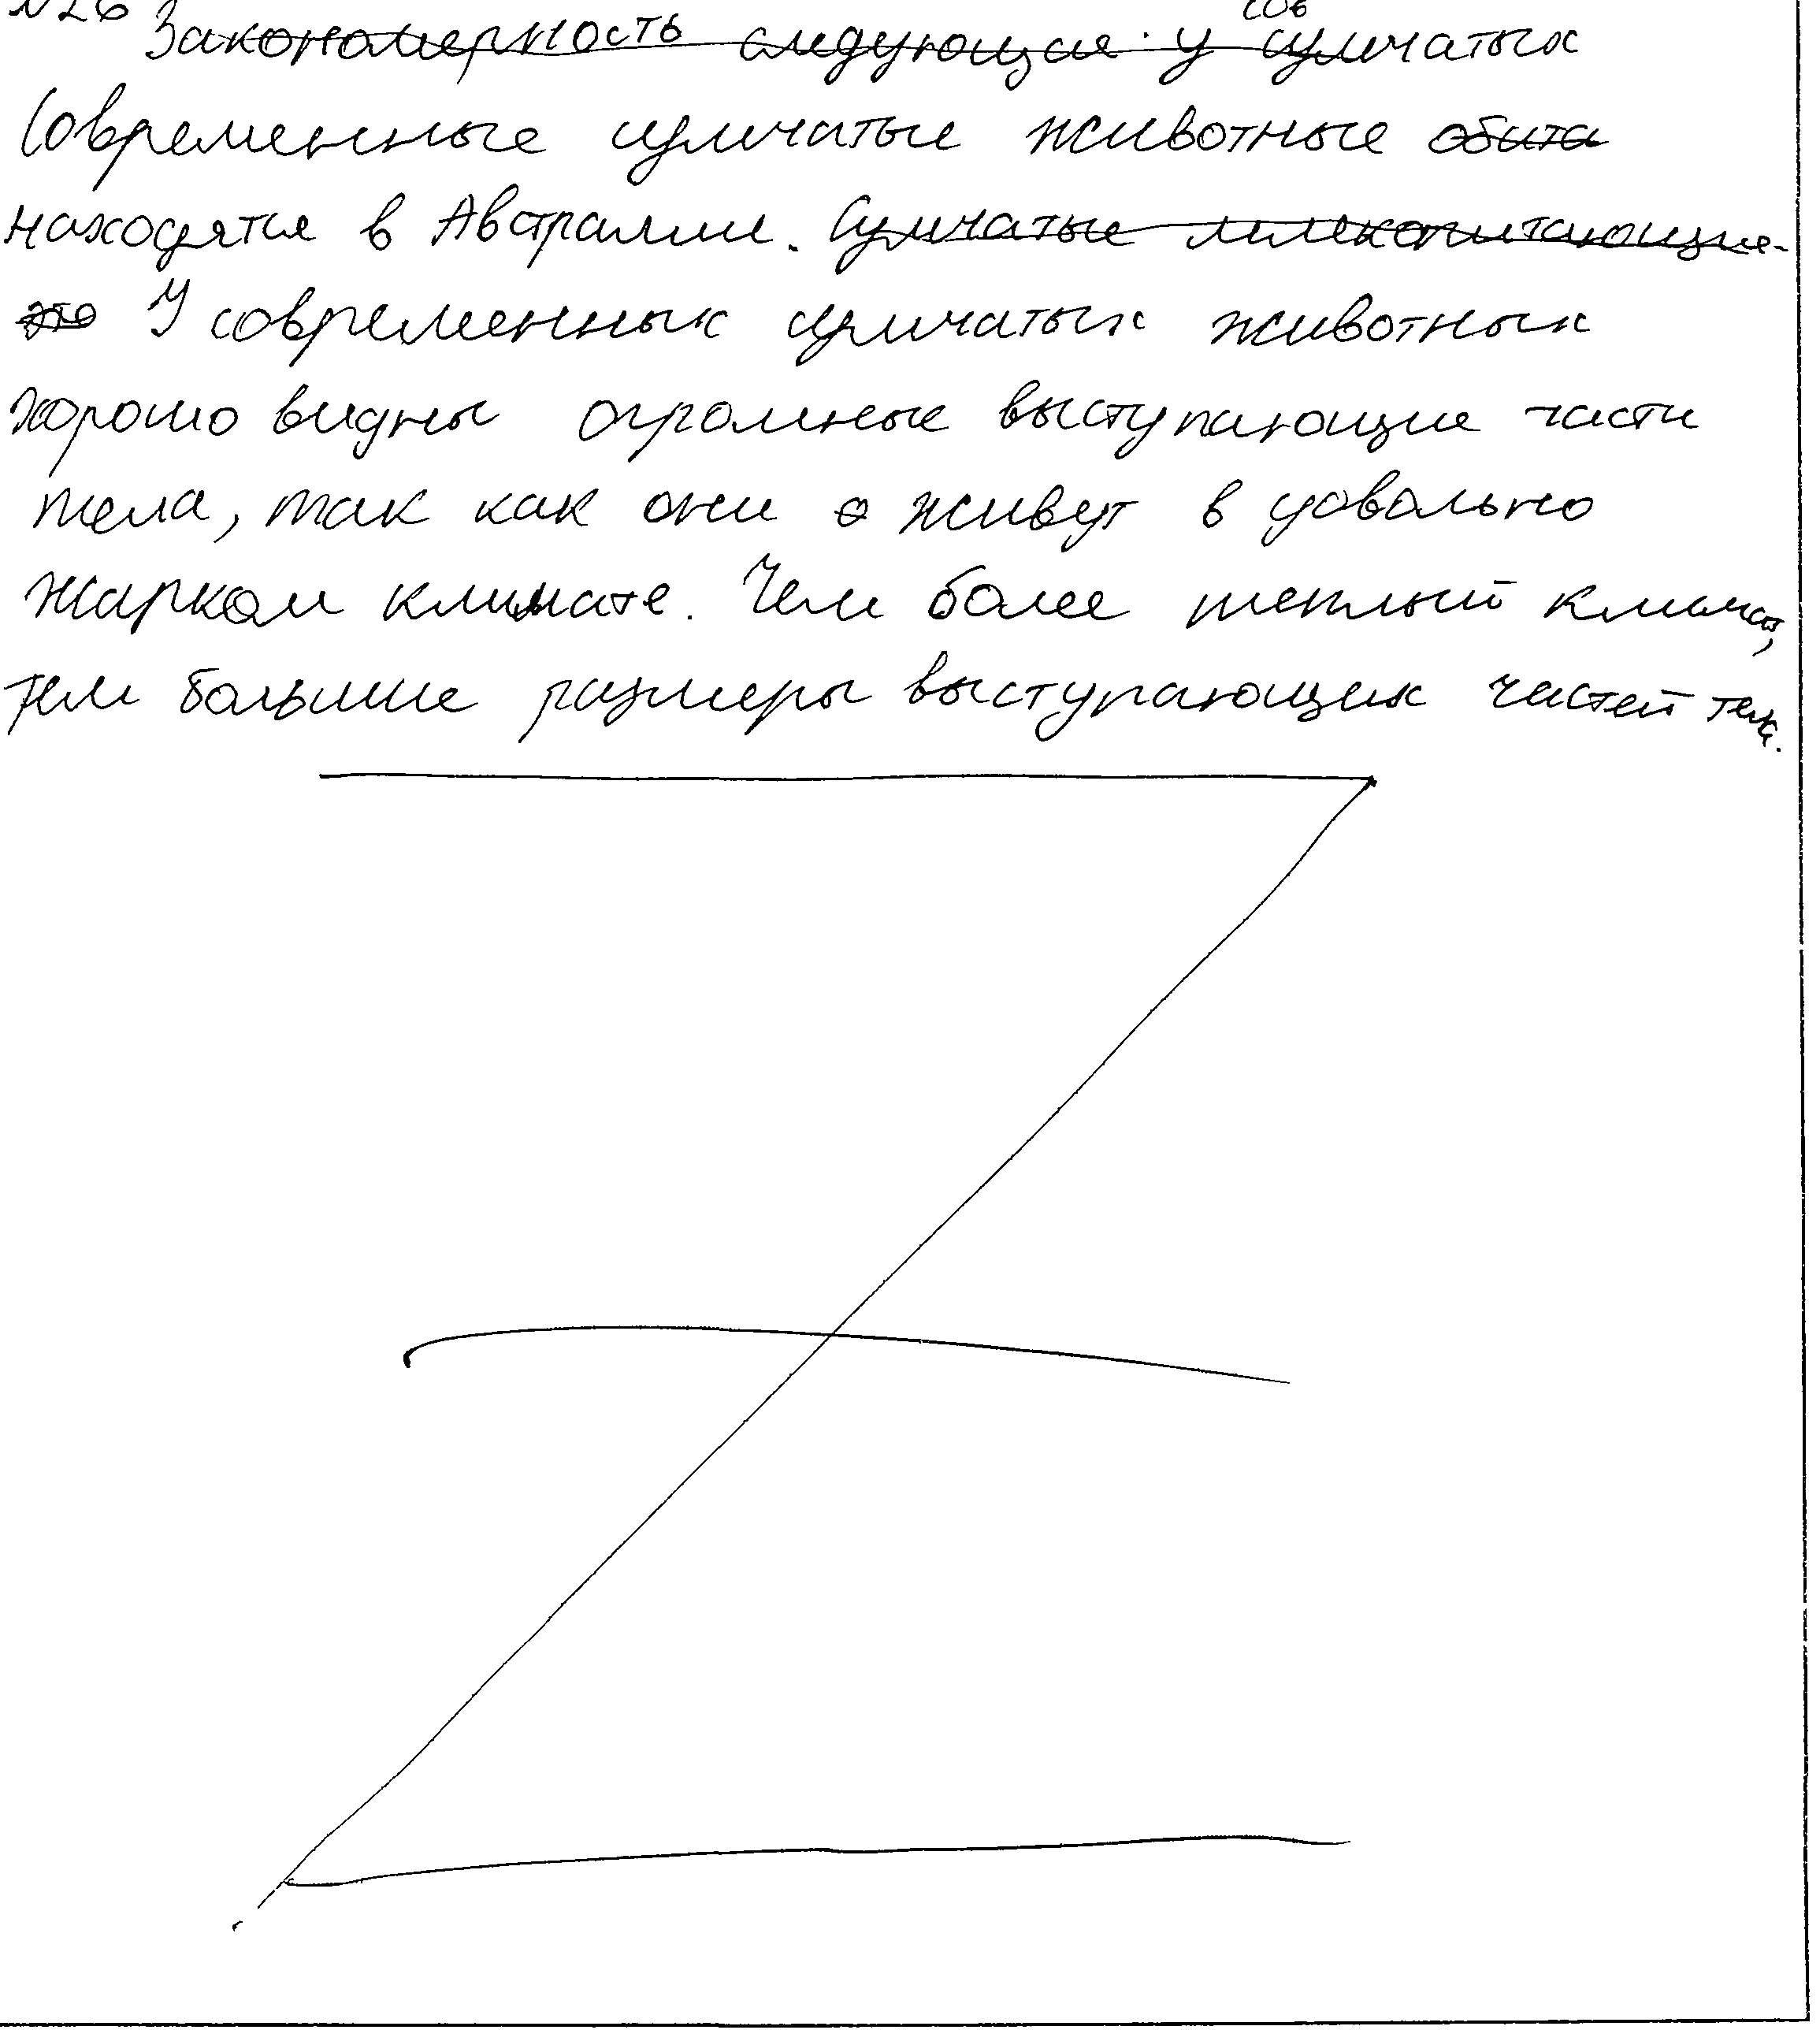 №26
сов
Закономерность следующая: у сумчатых
Современные сумчатые животные обита
находятся в Австралии. Сумчатые млекопитающие-
это У современных сумчатых животных
хорошо видны огромные выступающие части
тела, так как они о живут в довольно
жарком климате. Чем более теплый климат,
тем большие размеры выступающих частей тела.